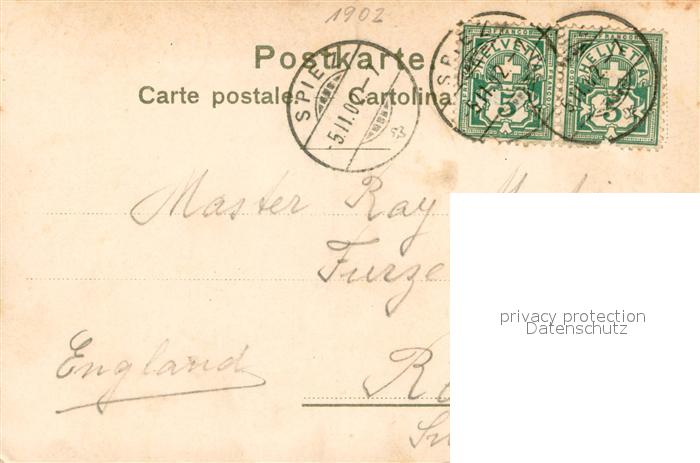 1902
Postkarte.
Carte postale. Cartolina
SPIEZ
-5.II.02-7
HELVETIA
FRANCO
5
HELVETIA
FRANCO
5
Master Ray
Furze
England
privacy protection
Datenschutz